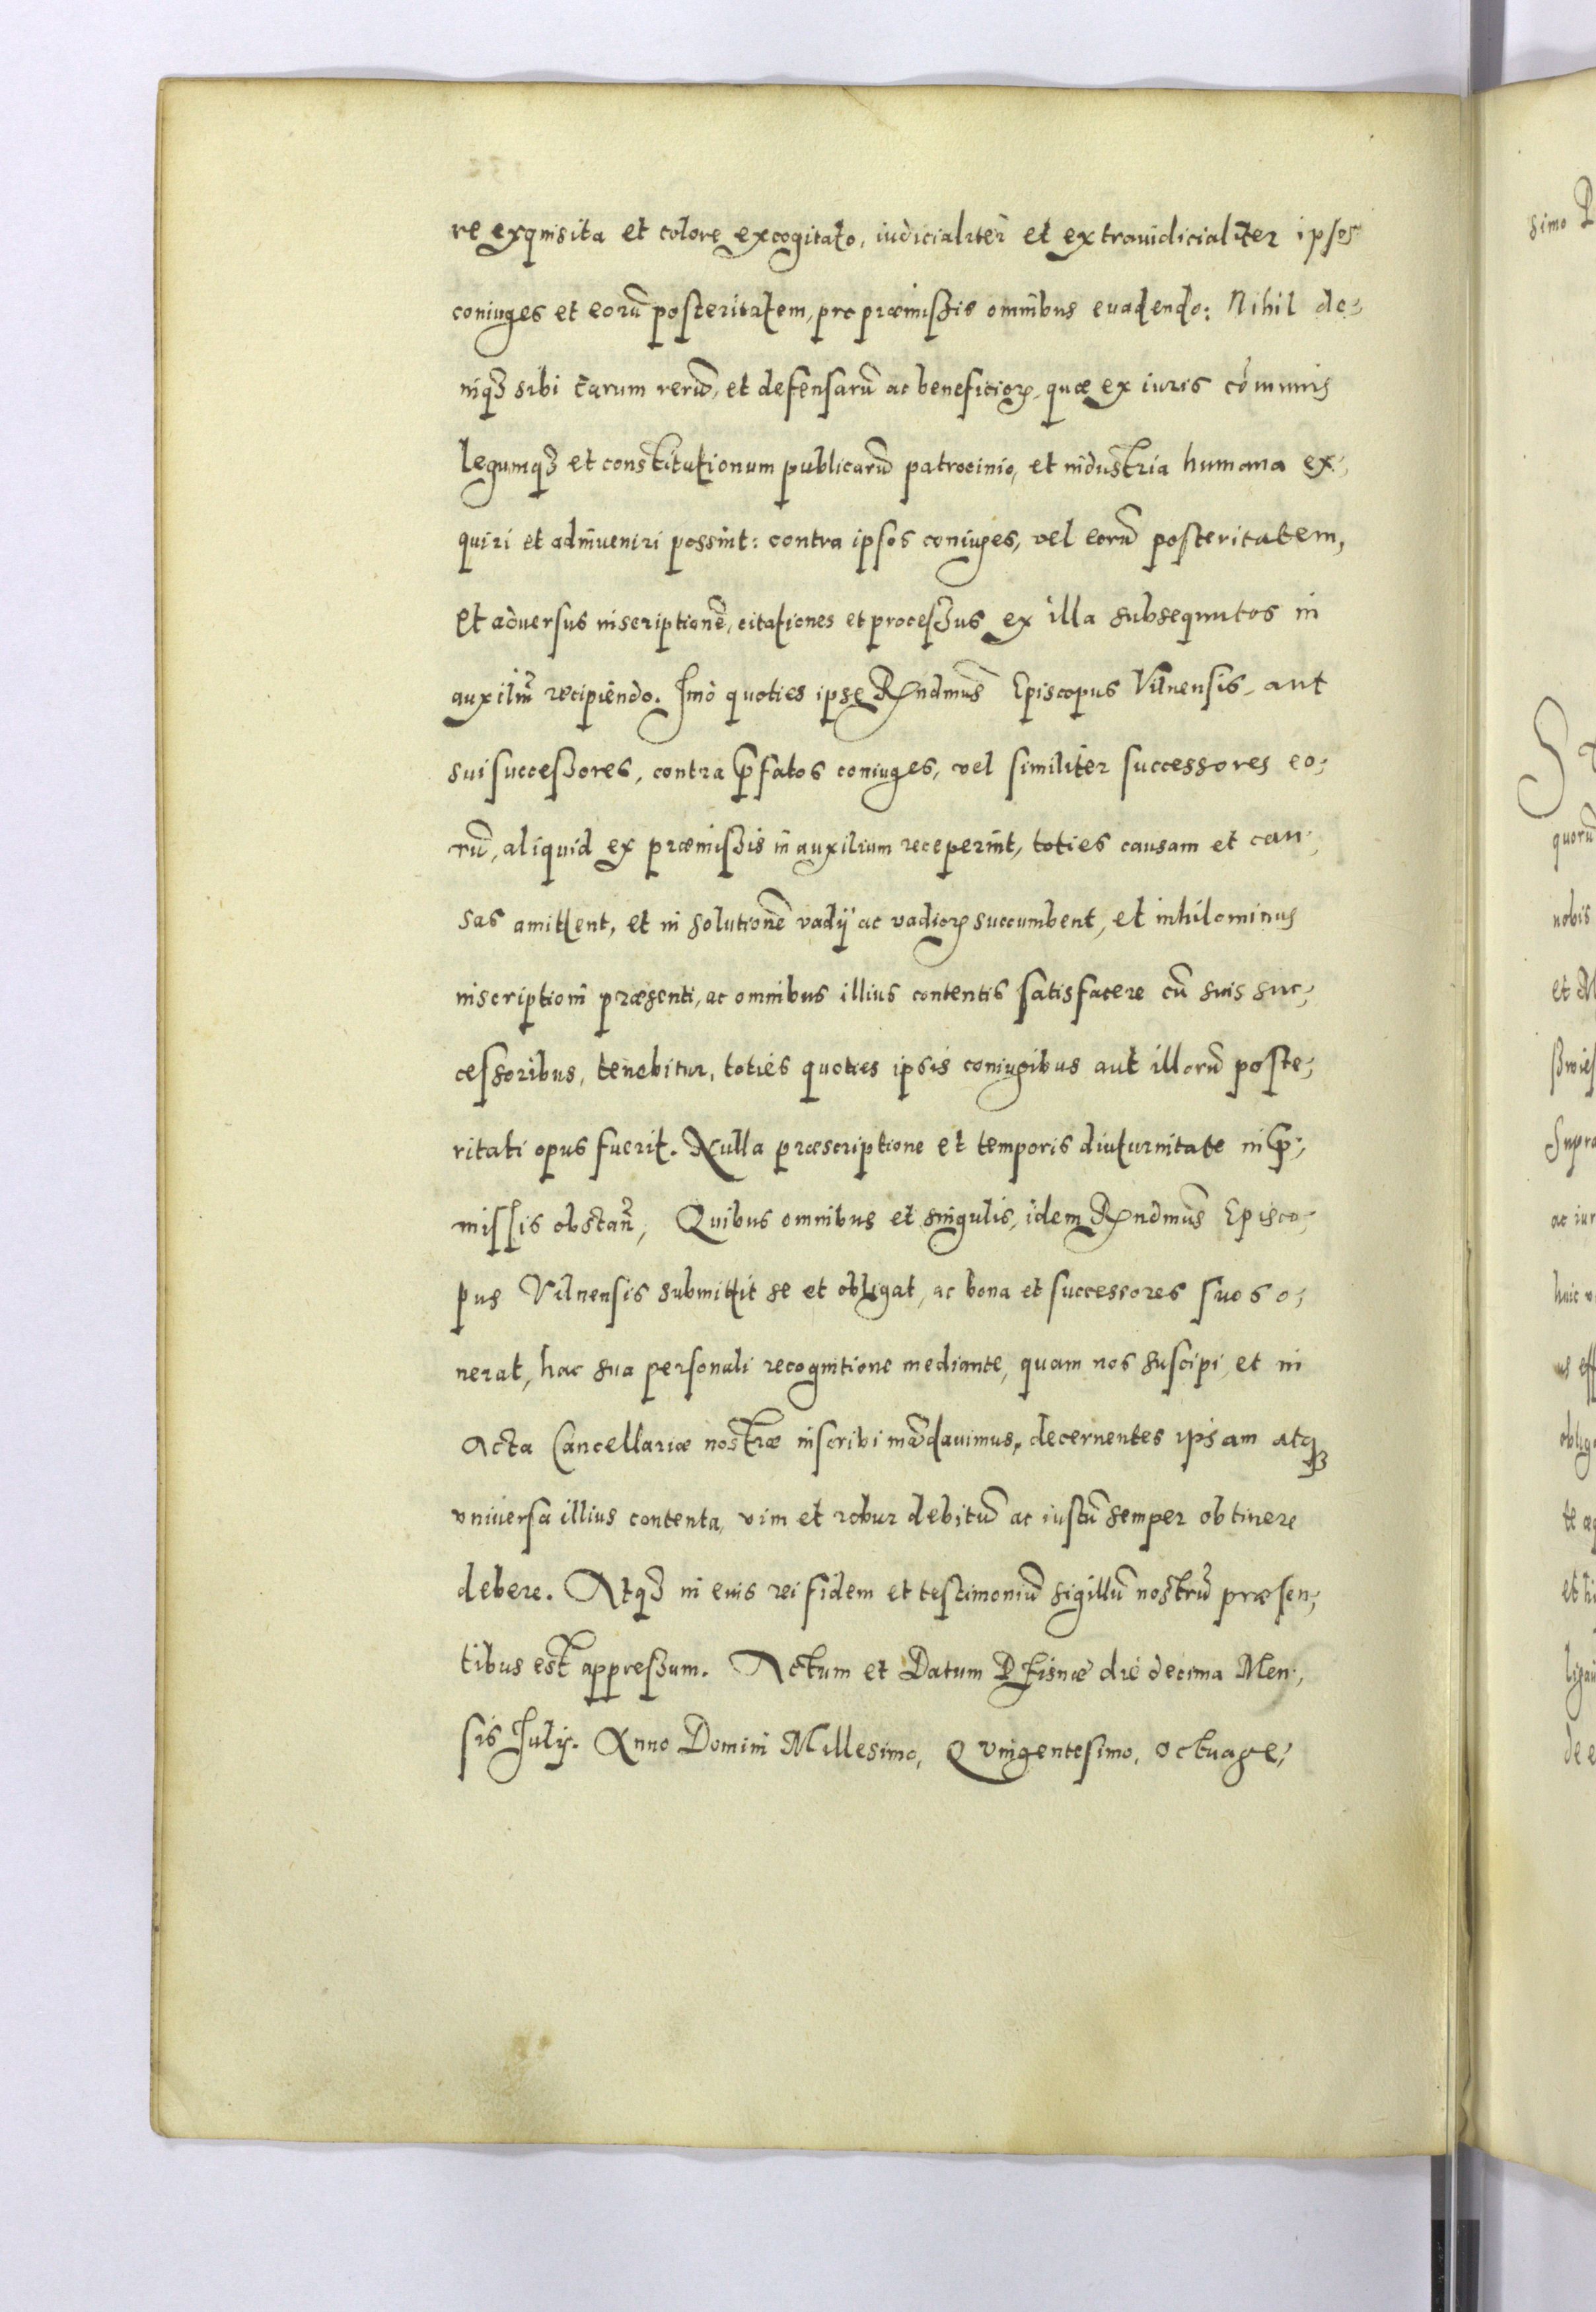 re exquisita et colore excogitato, iudicialiter et extraiudicialiter ipsos
coniuges et eorū posteritatem, pro præmissis omnibus euadendo: Nihil de;
niqȝ sibi earum rerū, et defensarū ac beneficioꝝ, quæ ex iuris cōmunis
legumqȝ et constitutionum publicarū patrocinio, et industria humana ex;
quiri et adinueniri possint: contra ipsos coniuges, vel eorū posteritatem,
et aduersus inscriptionē, citationes et processus ex illa subsequutos in
auxiliū recipiendo. Imò quoties ipse Rͣndmūs Episcopus Vilnensis, aut
sui successores, contra p̄fatos coniuges, vel similiter successores eo;
rū, aliquid ex præmissis in auxilium receperint, toties causam et cau;
sas amittent, et in solutionē vadij ac vadioꝝ succumbent, et nihilominus
inscriptioni præsenti, ac omnibus illius contentis satisfacere cū suis suc;
cessoribus, tenebitur, toties quoties ipsis coniugibus aut illorū poste;
ritati opus fuerit. Nulla præscriptione et temporis diuturnitate in p̄;
missis obstan̄, Quibus omnibus et singulis, idem Rͣndmūs Episco;
pus Vilnensis submittit se et obligat, ac bona et successores suos o;
nerat, hac sua personali recognitione mediante, quam nos suscipi, et in
Acta Cancellariæ nostræ inscribi mādauimus, decernentes ipsam atqȝ
vniuersa illius contenta, vim et robur debitū ac iustū semper obtinere
debere. Atqȝ in euis rei fidem et testimoniū sigillū nostrū præsen;
tibus est appressum. Actum et Datum Disnæ die decima Men;
sis Iulij. Anno Domini Millesimo, Quingentesimo, octuage;
simo
quorū
nobis
et
Supra
te
de e